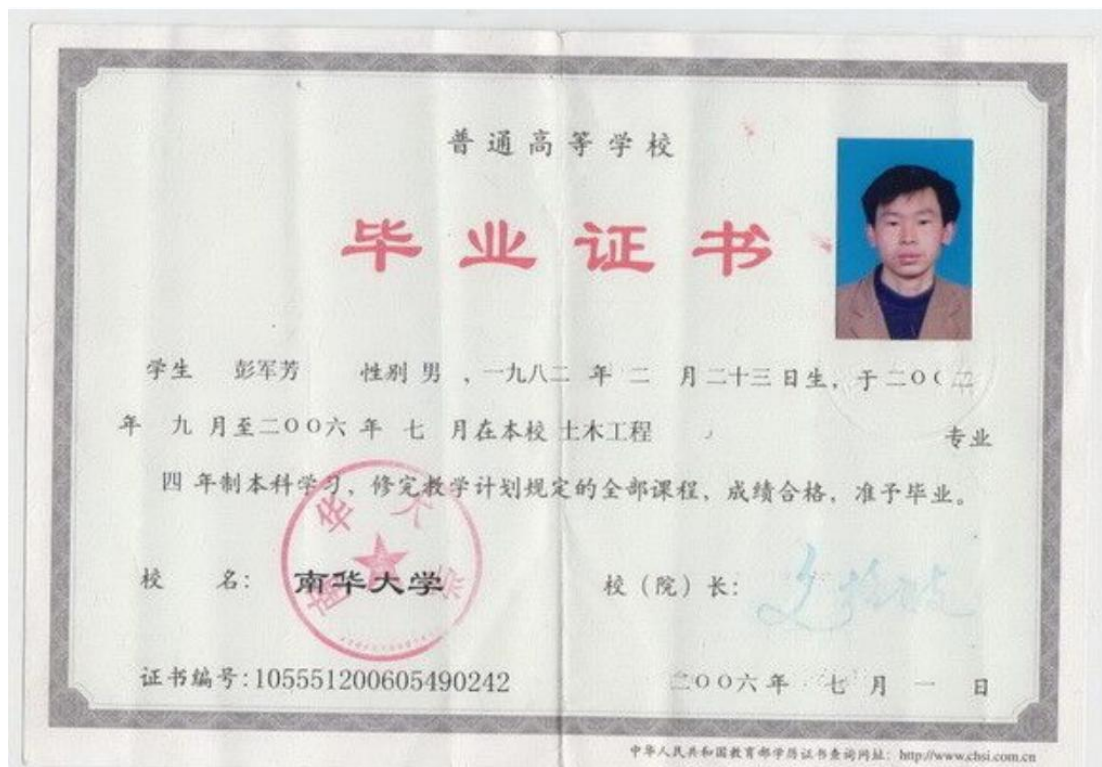 普通高等学校
毕业证书
学生 彭军芳 性别 男 、一九八二 年 二 月 二十三 日生，于 二〇〇二
年 九 月至二〇〇六 年 七 月在本校 土木工程 专业
四 年制本科学习，修完教学计划规定的全部课程、成绩合格，准予毕业。
校 名： 南华大学 校（院）长：
南华大学
证书编号：105551200605490242 二〇〇六年 七 月 一 日
中华人民共和国教育部学历证书查询网址：http://www.chsi.com.cn